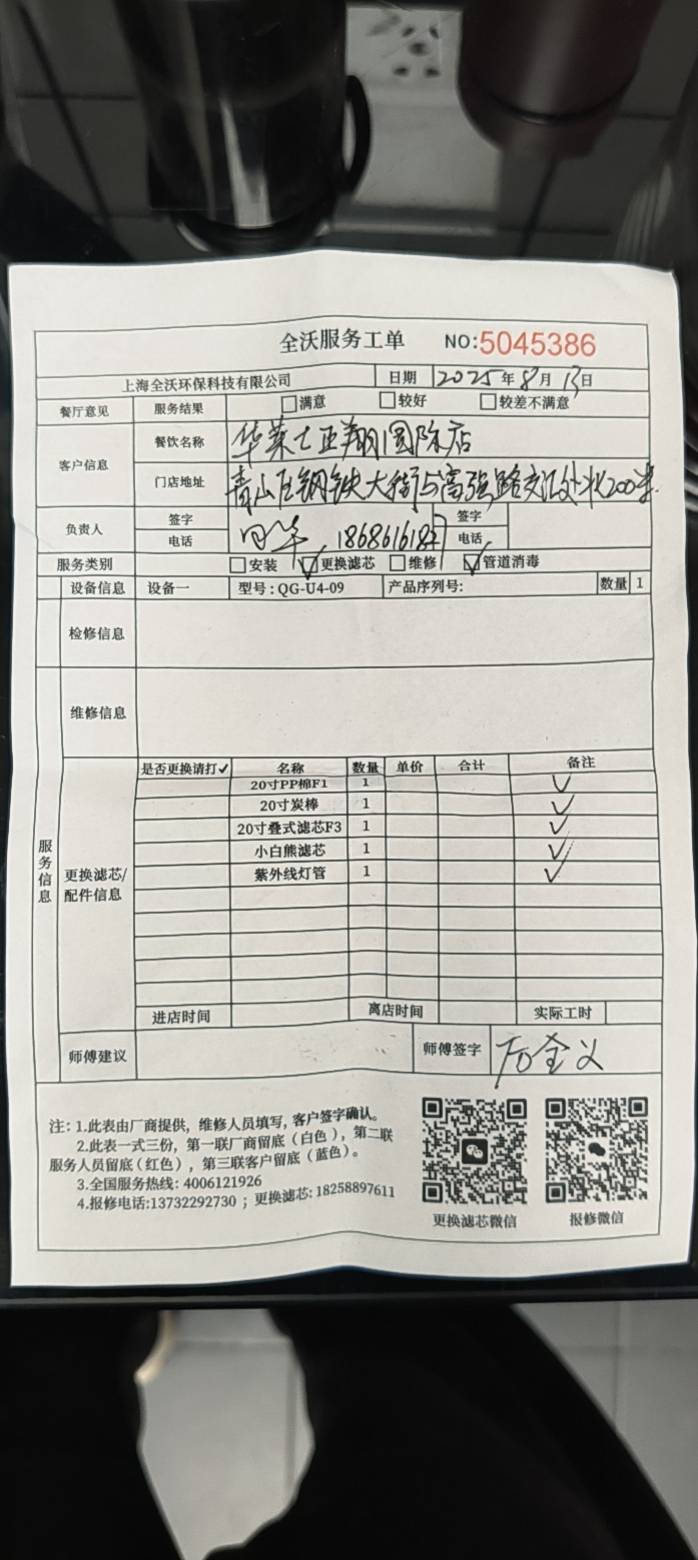 全沃服务工单 NO:5045386
上海全沃环保科技有限公司 日期 2025年8月13日
餐厅意见 服务结果 □满意 □较好 □较差不满意
客户信息 餐饮名称 华莱士亚翔国际店
门店地址 青山区钢铁大街与富强路交汇处北200米
负责人 签字 签字
电话 电话
服务类别 □安装 ☑更换滤芯 □维修 ☑管道消毒
设备信息 设备一 型号:QG-U4-09 产品序列号: 数量 1
检修信息
维修信息
服务信息
更换滤芯/配件信息
是否更换请打✓ 名称 数量 单价 合计 备注
20寸PP棉F1 1 ✓
20寸炭棒 1 ✓
20寸叠式滤芯F3 1 ✓
小白熊滤芯 1 ✓
紫外线灯管 1 ✓
进店时间 离店时间 实际工时
师傅建议 师傅签字
注: 1.此表由厂商提供，维修人员填写, 客户签字确认。
2.此表一式三份，第一联厂商留底（白色），第二联
服务人员留底（红色），第三联客户留底（蓝色）。
3.全国服务热线: 4006121926
4.报修电话:13732292730 ；更换滤芯: 18258897611
更换滤芯微信 报修微信